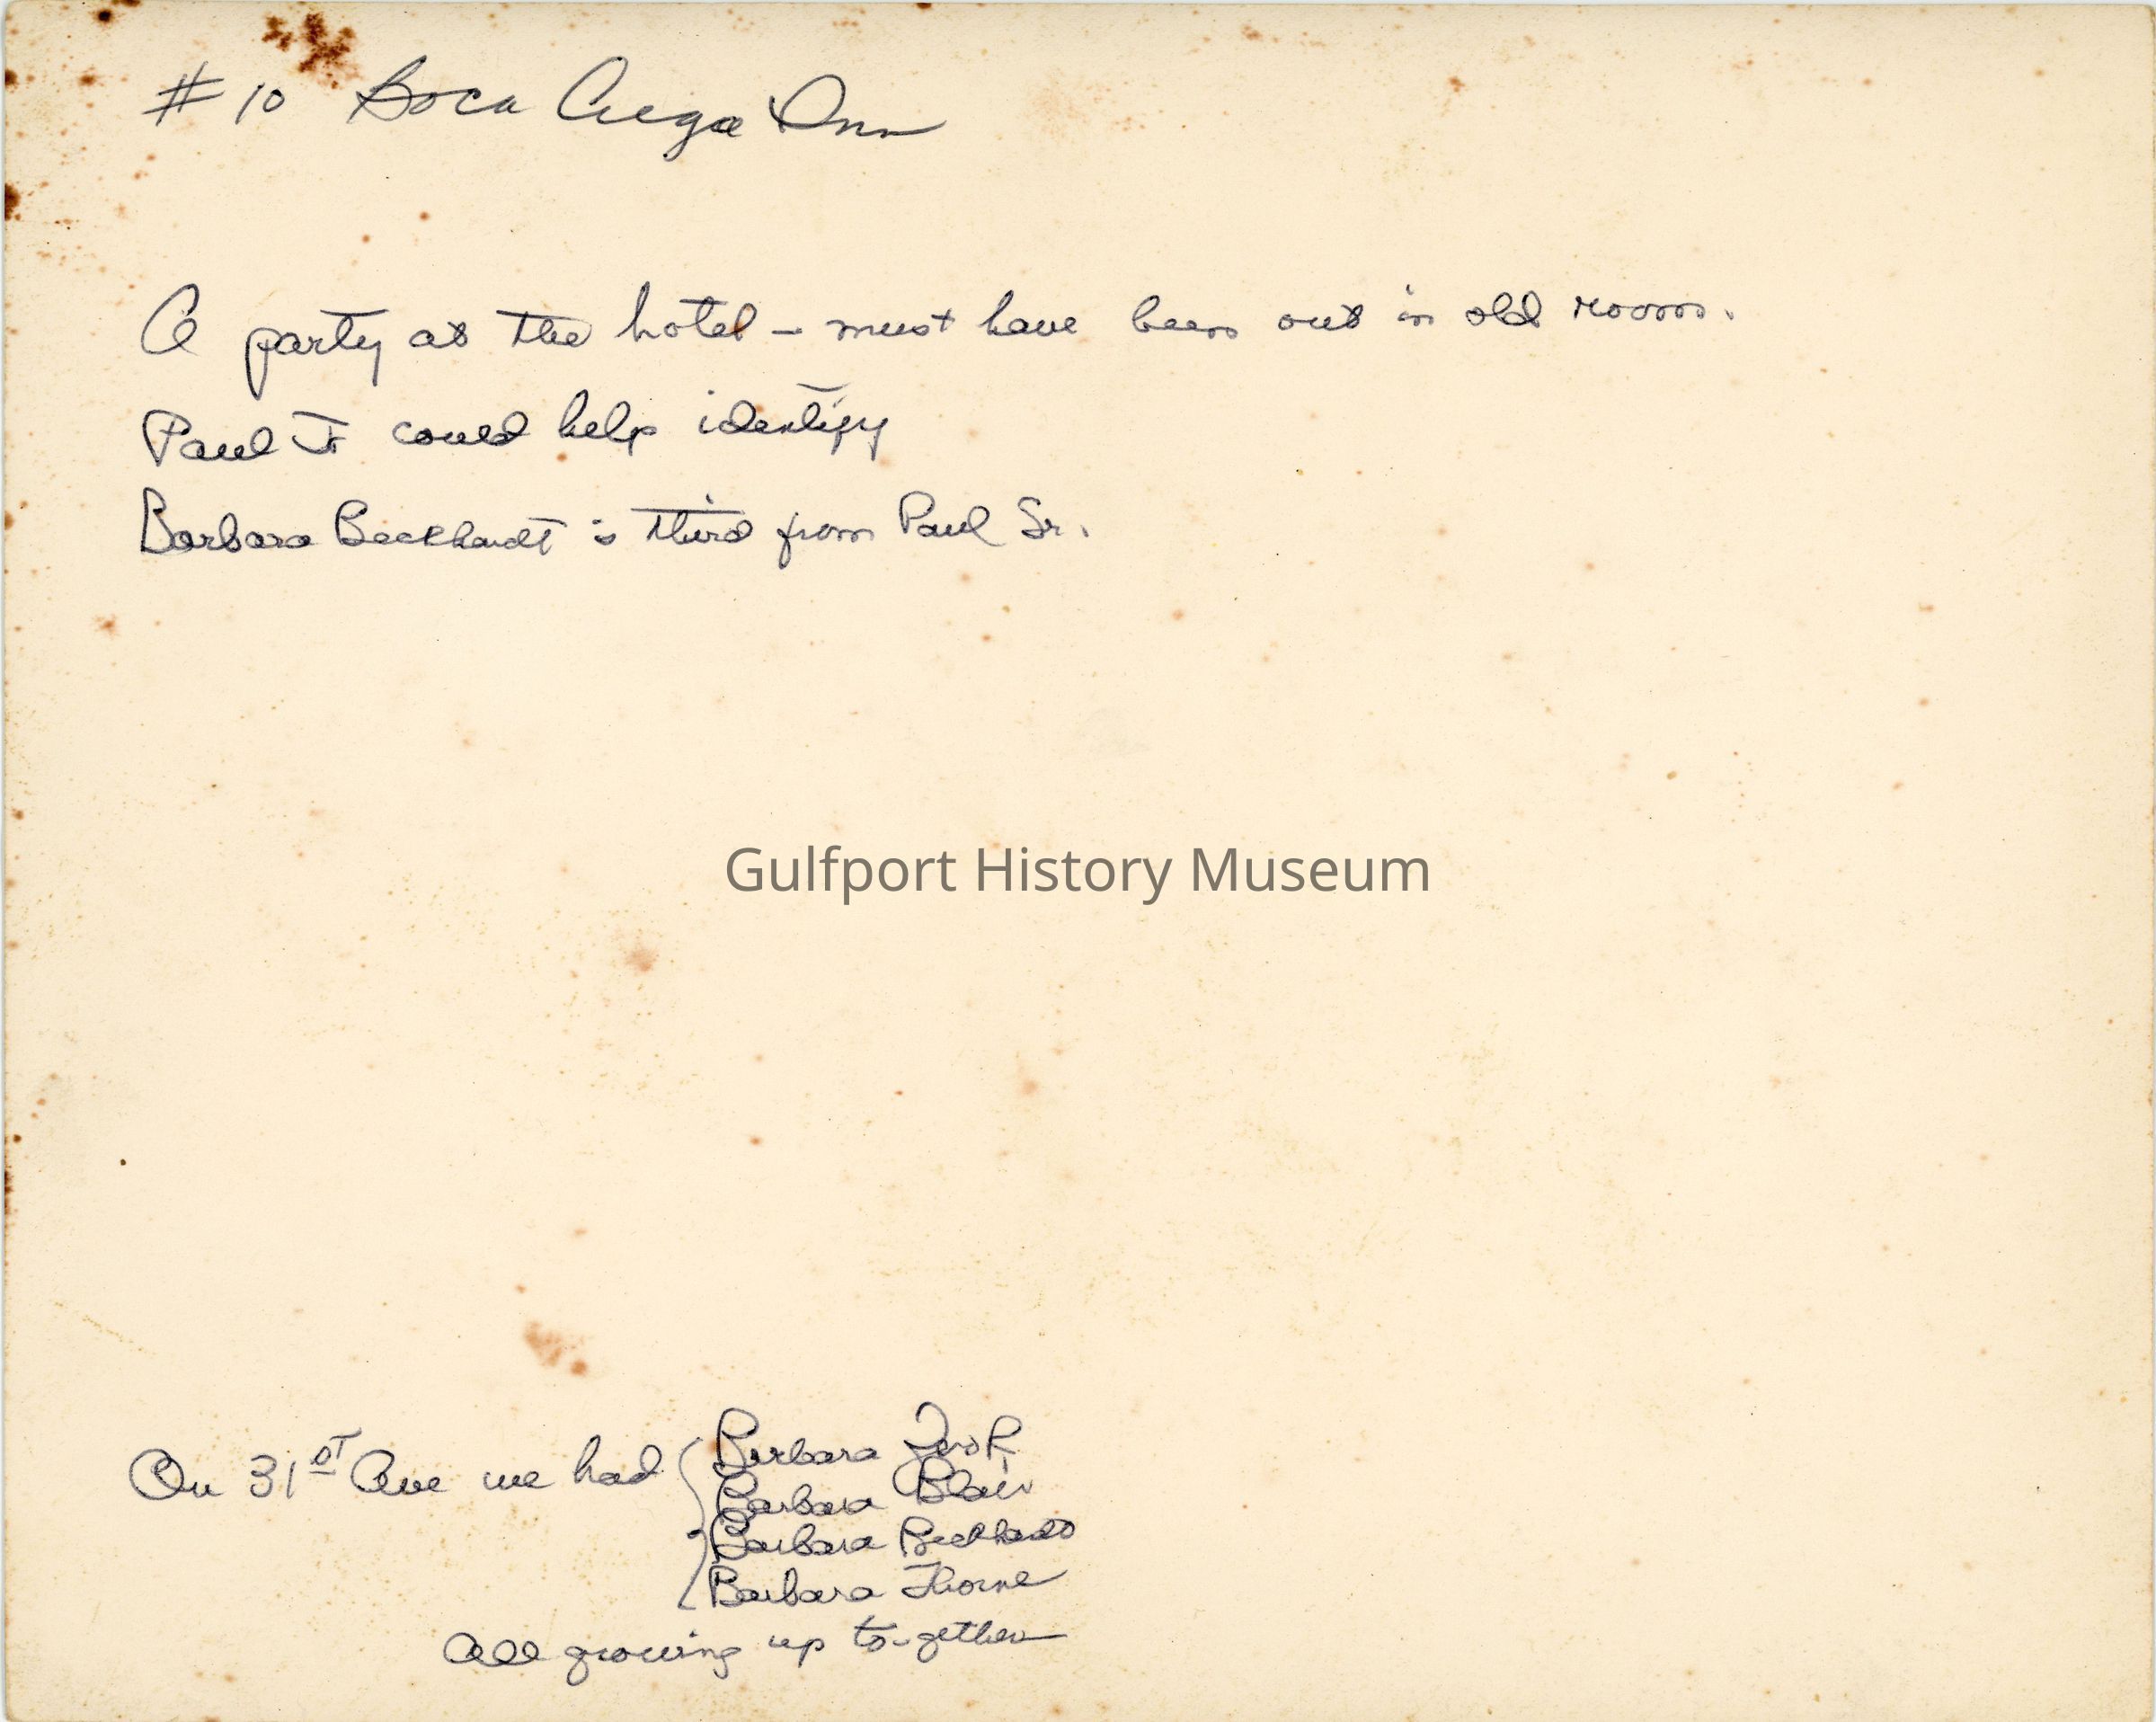 #10 Boca Ciega Inn
A party at the hotel – must have been out in old room.
Paul Jr could help identify
Barbara Beckhardt is third from Paul Sr.
Gulfport History Museum
On 31st Ave we had { Barbara
Barbara Blair
Barbara Beckhardt
Barbara Thorne
All growing up to-gether